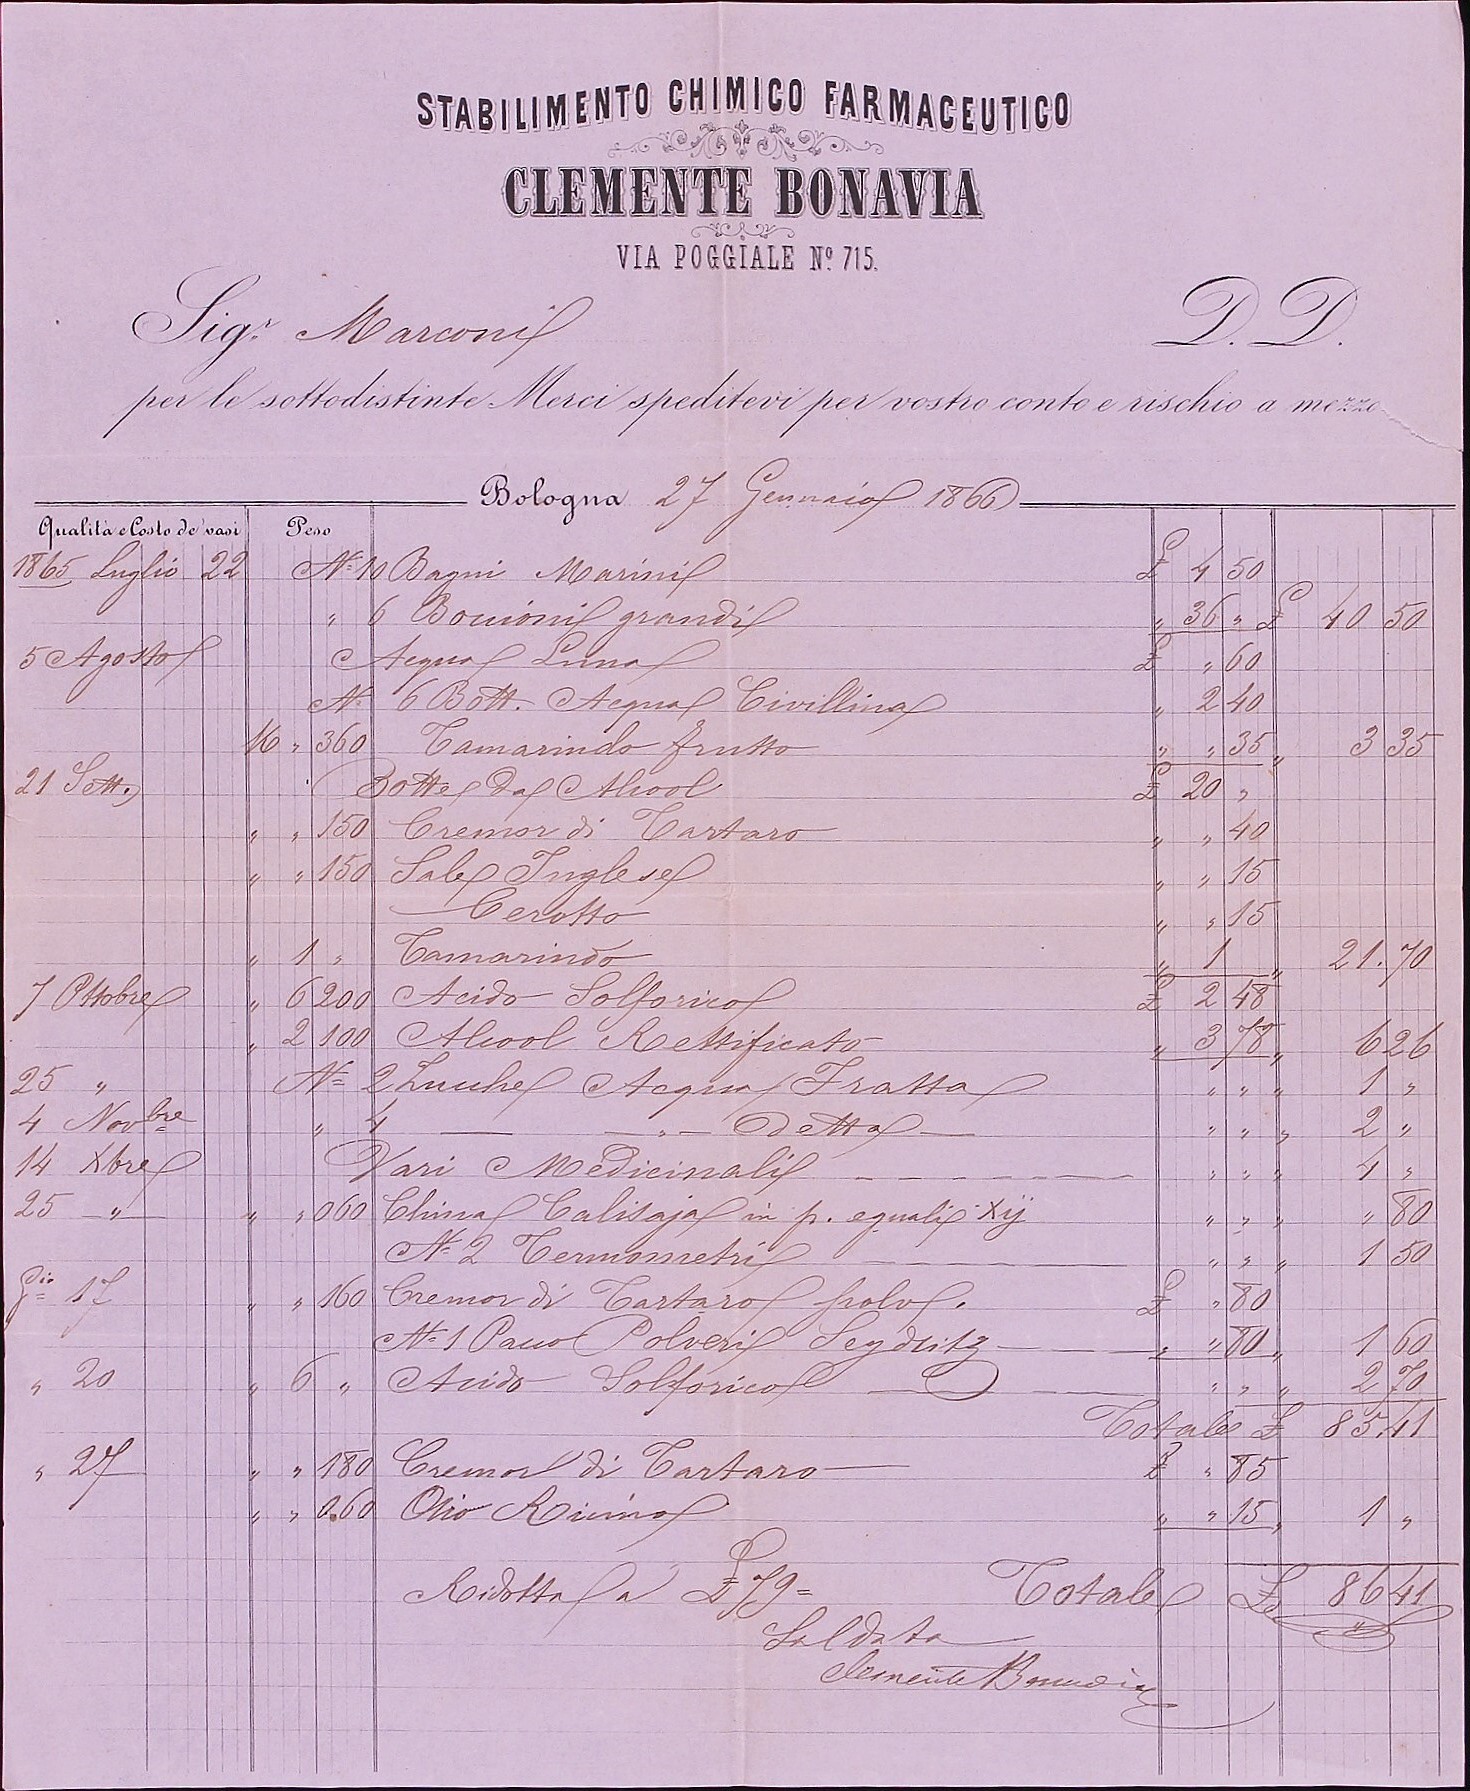 STABILIMENTO CHIMICO FARMACEUTICO
CLEMENTE BONAVIA
VIA POGGIALE Nº 715.
Sigr. Marconi D. D.
per le sottodistinte Merci speditevi per vostro conto e rischio a mezzo
Bologna 27 Gennaio 1866
Qualità e Costo de' vasi Peso
1865 Luglio 22 Nº 10 Bagni Marini £ 4 50
" 6 Boccioni grandi " 36 " £ 40 50
5 Agosto Acqua Luna £ " 60
Nº 6 Bott. Acqua Civillina " 2 40
K " 360 Tamarindo frutto " " 35 " 3 35
21 Sett. Botte da Alcool £ 20 "
" " 150 Cremor di Tartaro " " 40
" " 150 Sale Inglese " " 15
Cerotto " " 15
" 1 " Tamarindo " 1 " 21.70
7 Ottobre " 6 200 Acido Solforico £ 2 48
" 2 100 Alcool Rettificato " 3 78 " 6 26
25 " Nº 2 Zucche Acqua Fratta " " " 1 "
4 Novbre " 4 — " — Detta — " " " 2 "
14 Xbre Vari Medicinali " " " 4 "
25 " " " 060 China Calisaja in p. equali Xij " " " " 80
Nº 2 Termometri " " " 1 50
Gio 17 " " 160 Cremor di Tartaro polv. £ " 80
Nº 1 Pacco Polveri Seydlitz " " 80 " 1 60
" 20 " 6 " Acido Solforico " " " 2 70
Totale £ 85.41
" 27 " " 180 Cremor di Tartaro £ " 85
" " 0.60 Olio Ricino " " 15 " 1 "
Ridotta a £ 79= Totale £ 86 41
Saldata
Clemente Bonavia